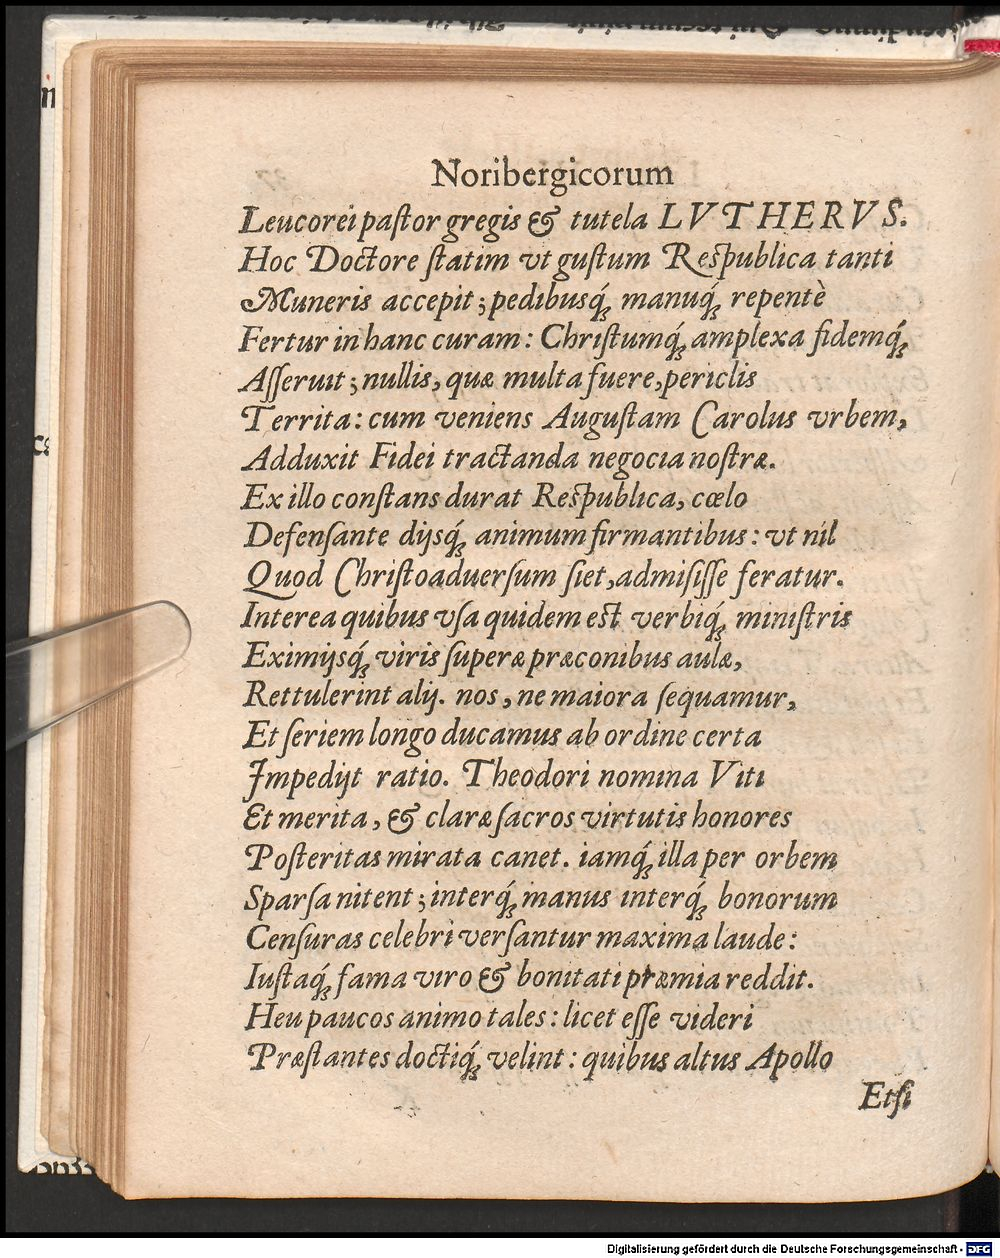 Noribergicorum
Leucorei paſtor gregis & tutela LVTHERVS.
Hoc Doctore ſtatim vt guſtum Reſpublica tanti
Muneris accepit; pedibusq́ꝫ manuq́ꝫ repentè
Fertur in hanc curam: Chriſtumq́ꝫ amplexa fidemq́ꝫ
Aſſeruit; nullis, quæ multa fuere, periclis
Territa: cum veniens Auguſtam Carolus vrbem,
Adduxit Fidei tractanda negocia noſtræ.
Ex illo conſtans durat Reſpublica, cœlo
Defenſante dijsq́ꝫ animum firmantibus: vt nil
Quod Chriſto aduerſum ſiet, admiſiſſe feratur.
Interea quibus vſa quidem est verbiq́ꝫ miniſtris
Eximijsq́ꝫ viris ſuperæ præconibus aulæ,
Rettulerint alij. nos, ne maiora ſequamur,
Et ſeriem longo ducamus ab ordine certa
Impedijt ratio. Theodori nomina Viti
Et merita, & claræ ſacros virtutis honores
Poſteritas mirata canet. iamq́ꝫ illa per orbem
Sparſa nitent; interq́ꝫ manus interq́ꝫ bonorum
Cenſuras celebri verſantur maxima laude:
Iuſtaq́ꝫ fama viro & bonitati præmia reddit.
Heu paucos animo tales: licet eſſe videri
Præſtantes doctiq́ꝫ velint: quibus altus Apollo
Etſi
Digitalisierung gefördert durch die Deutsche Forschungsgemeinschaft - DFG